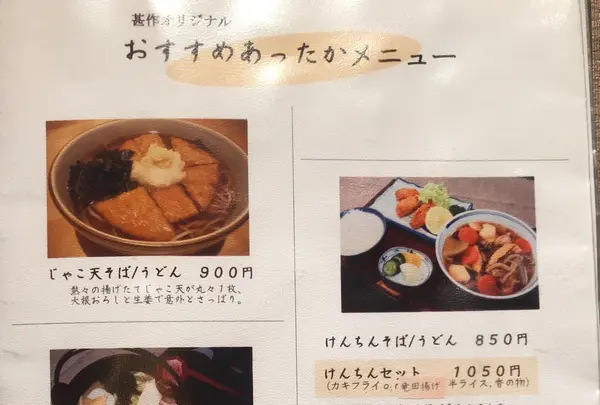 甚作オリジナル
おすすめあったかメニュー
じゃこ天そば/うどん 900円
熱々の揚げたてじゃこ天が丸々1枚、
大根おろしと生姜で意外とさっぱり。
けんちんそば/うどん 850円
けんちんセット 1050円
(カキフライor竜田揚げ 半ライス、香の物)